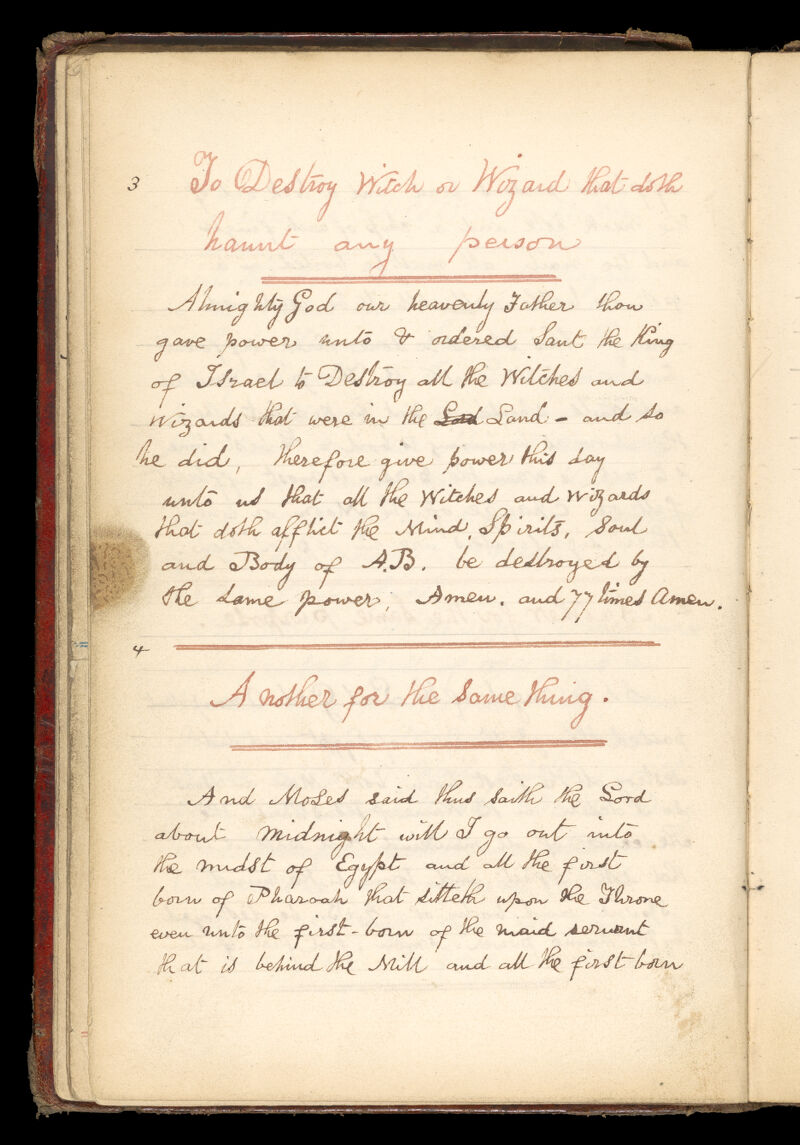 3 To Destroy Witch or Wizard that doth
haunt any person
Almighty God our heavenly Father thou
gave power unto & ordered Saul the King
of Israel to Destroy all the Witches and
Wizards that were in the Lord Land - and so
he did, therefore give power this day
unto us that all the Witches and Wizards
that doth afflict the Mind, Spirits, Soul
and Body of A.B. be destroyed by
the same power, Amen. and 77 times Amen.
4
Another for the same thing.
And Moses said thus saith the Lord
about midnight will I go out into
the midst of Egypt and all the first
born of Pharoah that sitteth upon the Throne
even unto the first-born of the maid servant
that is behind the Mill and all the first born